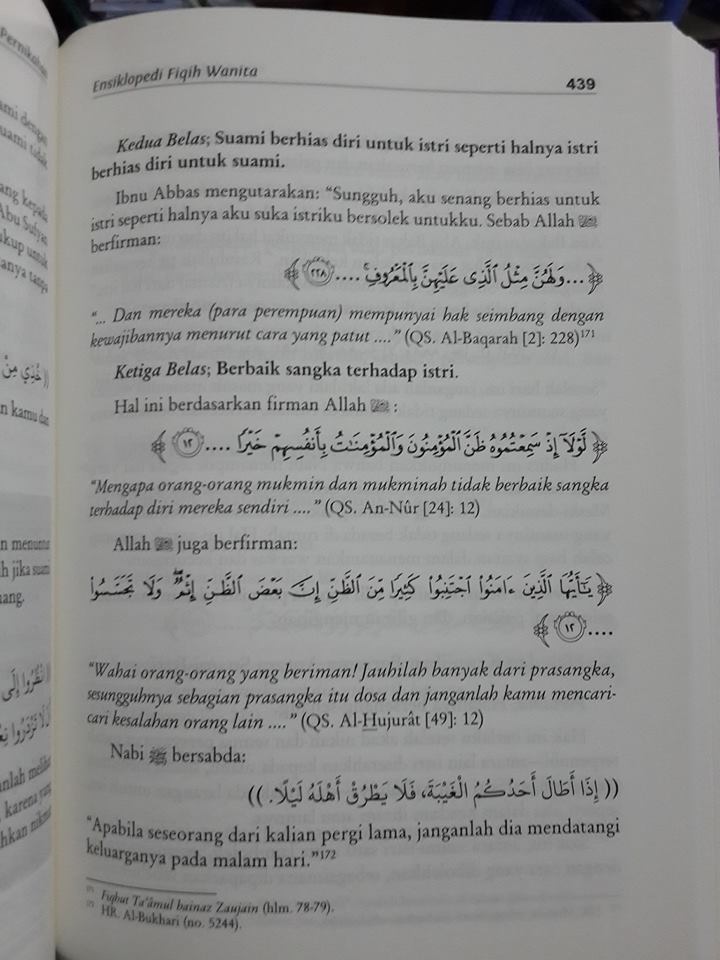 Ensiklopedi Fiqih Wanita
439
Kedua Belas; Suami berhias diri untuk istri seperti halnya istri
berhias diri untuk suami.
Ibnu Abbas mengutarakan: “Sungguh, aku senang berhias untuk
istri seperti halnya aku suka istriku bersolek untukku. Sebab Allah ﷻ
berfirman:
﴿... وَلَهُنَّ مِثْلُ ٱلَّذِى عَلَيْهِنَّ بِٱلْمَعْرُوفِ ۚ .... ٢٢٨﴾
“... Dan mereka (para perempuan) mempunyai hak seimbang dengan
kewajibannya menurut cara yang patut ....” (QS. Al-Baqarah [2]: 228)¹⁷¹
Ketiga Belas; Berbaik sangka terhadap istri.
Hal ini berdasarkan firman Allah ﷻ :
﴿لَّوْلَآ إِذْ سَمِعْتُمُوهُ ظَنَّ ٱلْمُؤْمِنُونَ وَٱلْمُؤْمِنَـٰتُ بِأَنفُسِهِمْ خَيْرًا .... ١٢﴾
“Mengapa orang-orang mukmin dan mukminah tidak berbaik sangka
terhadap diri mereka sendiri ....” (QS. An-Nûr [24]: 12)
Allah ﷻ juga berfirman:
﴿يَـٰٓأَيُّهَا ٱلَّذِينَ ءَامَنُوا۟ ٱجْتَنِبُوا۟ كَثِيرًا مِّنَ ٱلظَّنِّ إِنَّ بَعْضَ ٱلظَّنِّ إِثْمٌ ۖ وَلَا تَجَسَّسُوا۟
.... ١٢﴾
“Wahai orang-orang yang beriman! Jauhilah banyak dari prasangka,
sesungguhnya sebagian prasangka itu dosa dan janganlah kamu mencari-
cari kesalahan orang lain ....” (QS. Al-Hujurât [49]: 12)
Nabi ﷺ bersabda:
(( إِذَا أَطَالَ أَحَدُكُمُ الْغَيْبَةَ، فَلَا يَطْرُقْ أَهْلَهُ لَيْلًا. ))
“Apabila seseorang dari kalian pergi lama, janganlah dia mendatangi
keluarganya pada malam hari.”¹⁷²
¹⁷¹ Fiqhut Ta’âmul bainaz Zaujain (hlm. 78-79).
¹⁷² HR. Al-Bukhari (no. 5244).